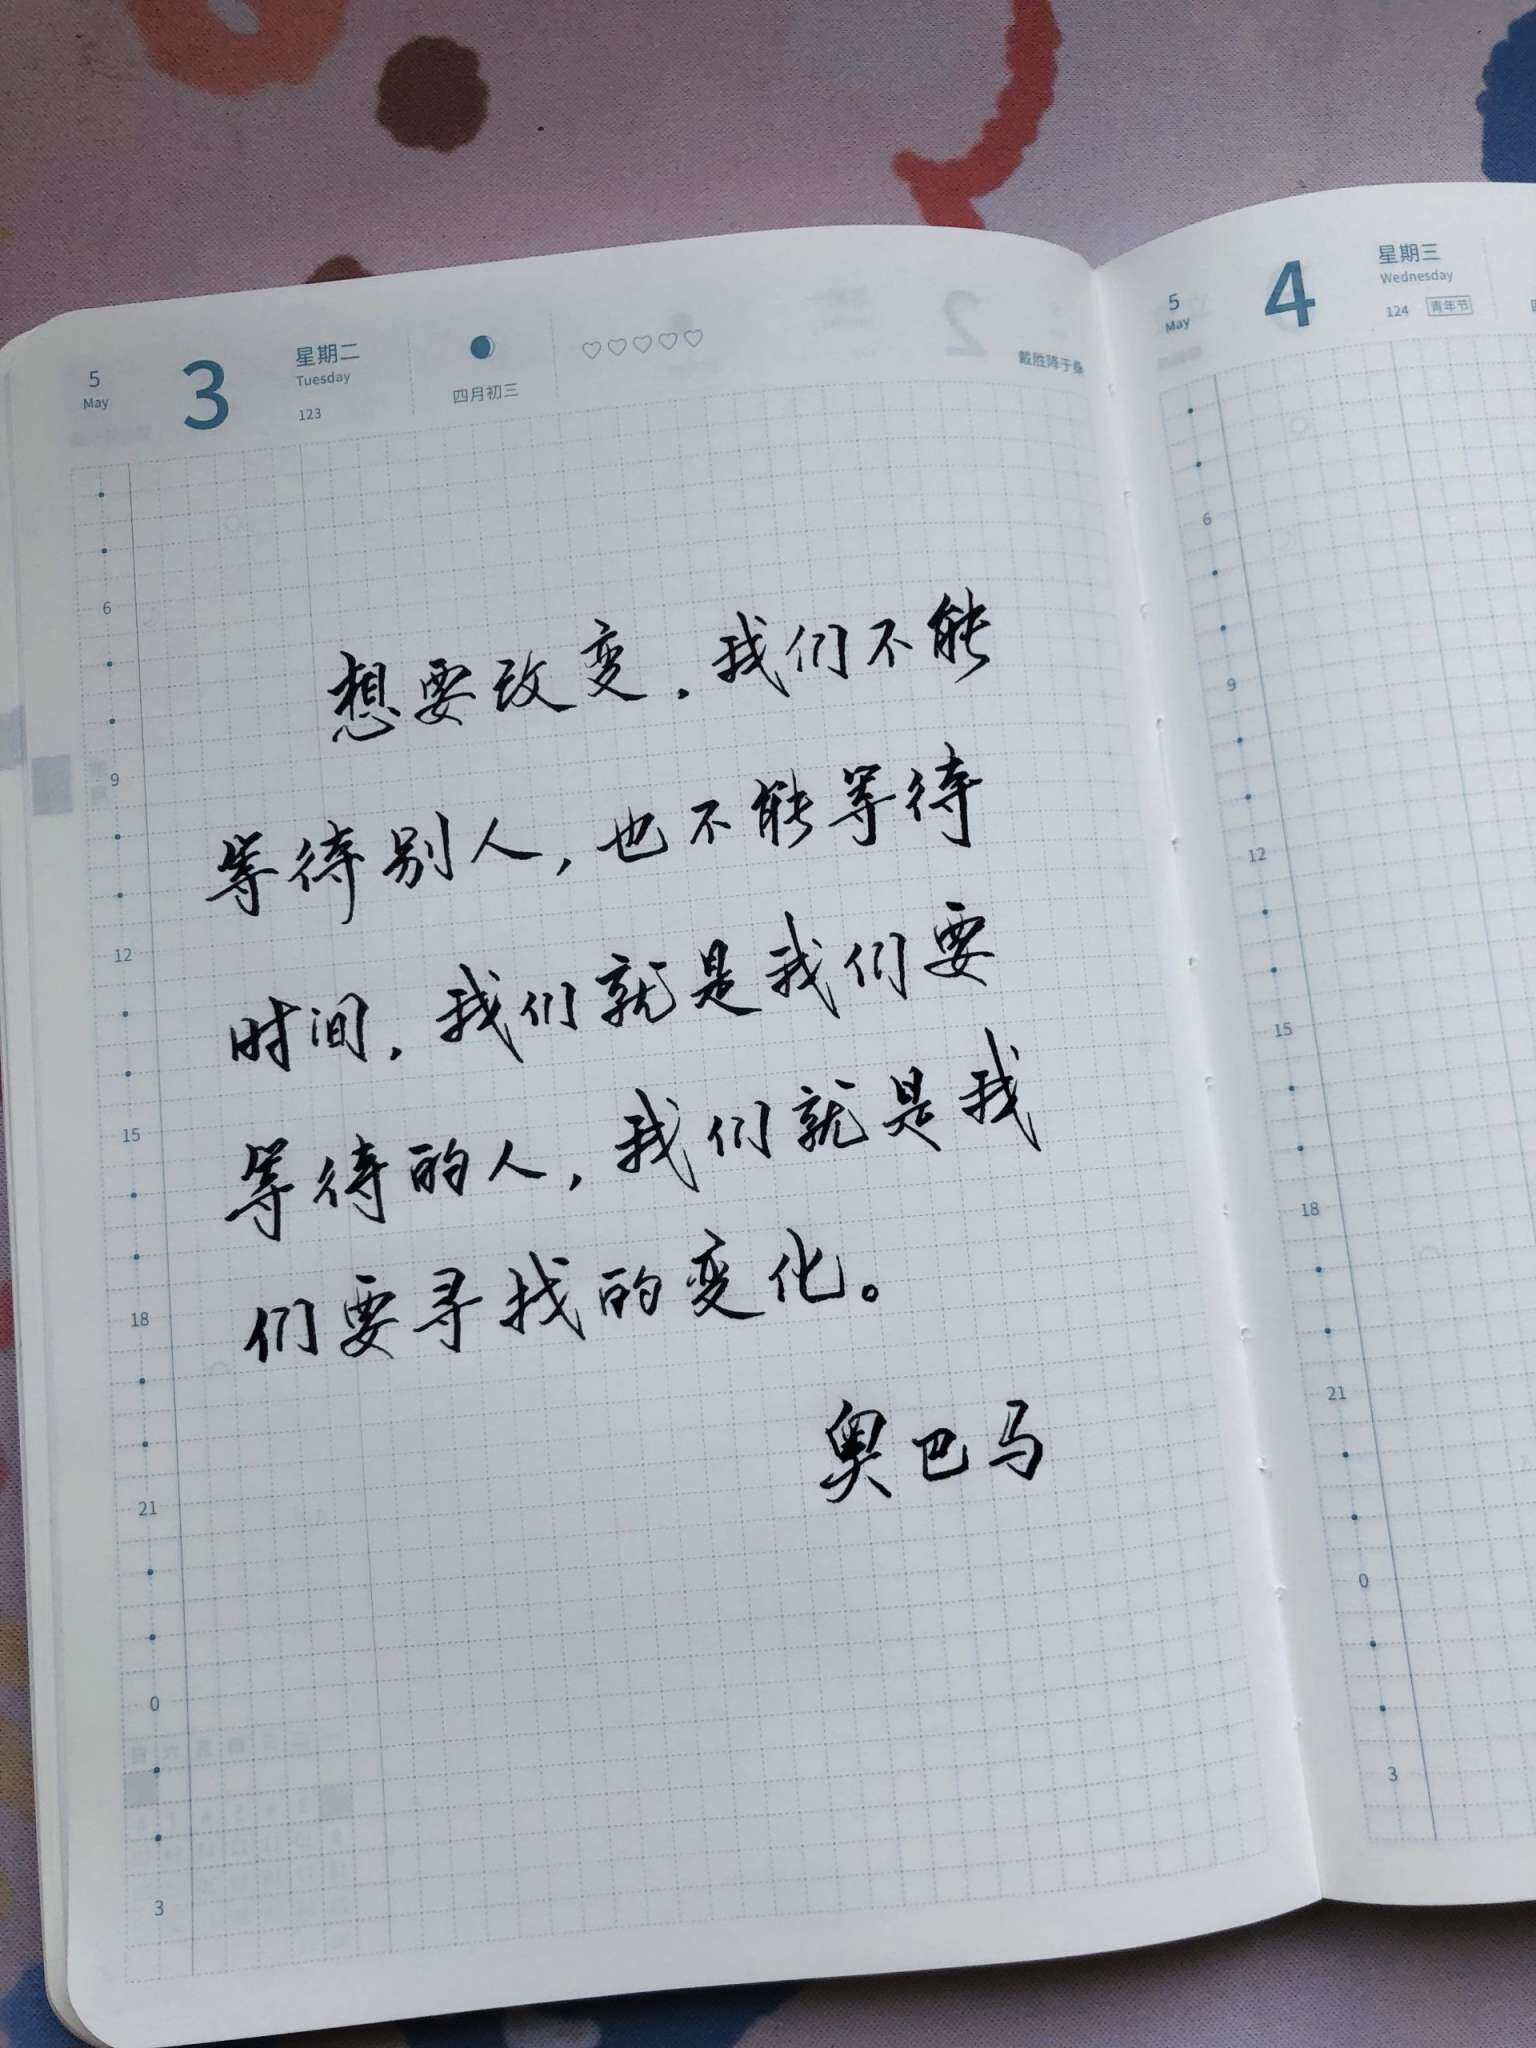 5
May
3
星期二
Tuesday
123
四月初三
戴胜降于桑
想要改变，我们不能
等待别人，也不能等待
时间，我们就是我们要
等待的人，我们就是我
们要寻找的变化。
奥巴马
6
9
12
15
18
21
0
3
5
May
4
星期三
Wednesday
124
青年节
6
9
12
15
18
21
0
3